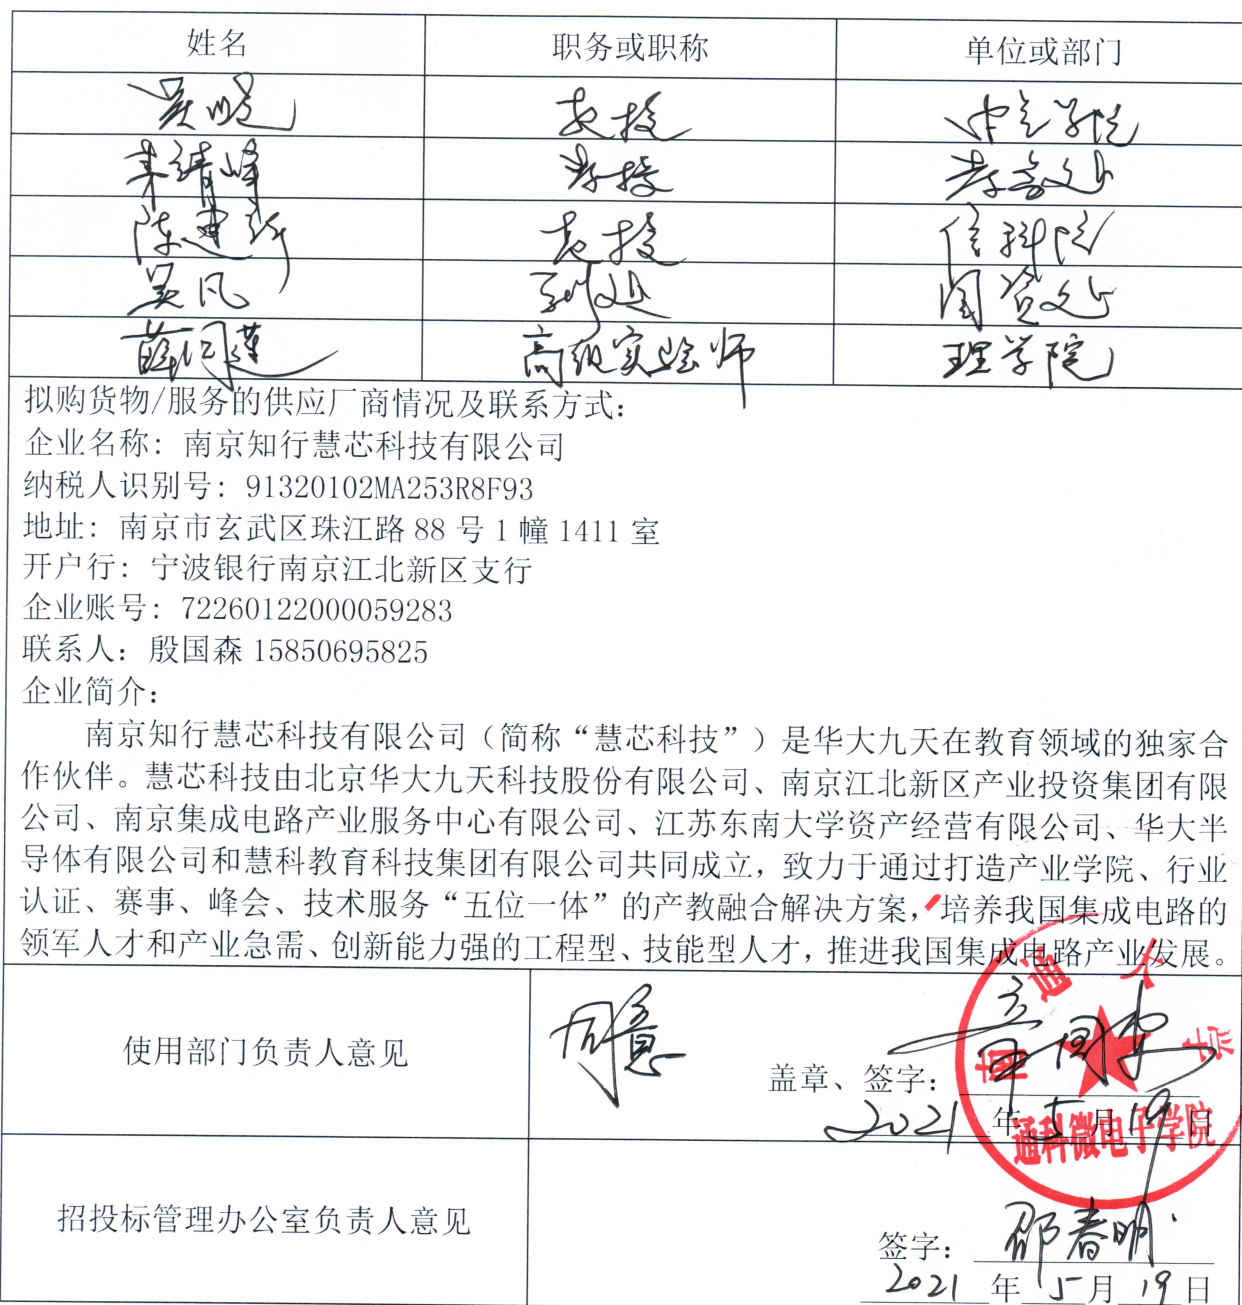 姓名 职务或职称 单位或部门
吴晓 教授 电气学院
朱靖峰 教授 教务处
陈建新 教授 信科院
吴凡 副处 国资处
薛闰莲 高级实验师 理学院
拟购货物/服务的供应厂商情况及联系方式：
企业名称：南京知行慧芯科技有限公司
纳税人识别号：91320102MA253R8F93
地址：南京市玄武区珠江路 88 号 1 幢 1411 室
开户行：宁波银行南京江北新区支行
企业账号：72260122000059283
联系人：殷国森 15850695825
企业简介：
南京知行慧芯科技有限公司（简称“慧芯科技”）是华大九天在教育领域的独家合
作伙伴。慧芯科技由北京华大九天科技股份有限公司、南京江北新区产业投资集团有限
公司、南京集成电路产业服务中心有限公司、江苏东南大学资产经营有限公司、华大半
导体有限公司和慧科教育科技集团有限公司共同成立，致力于通过打造产业学院、行业
认证、赛事、峰会、技术服务“五位一体”的产教融合解决方案，培养我国集成电路的
领军人才和产业急需、创新能力强的工程型、技能型人才，推进我国集成电路产业发展。
南通大学
同意 章国安
使用部门负责人意见
盖章、签字：
2021 年 5 月 19 日
通科微电子学院
招投标管理办公室负责人意见
签字：邵春明
2021 年 5 月 19 日